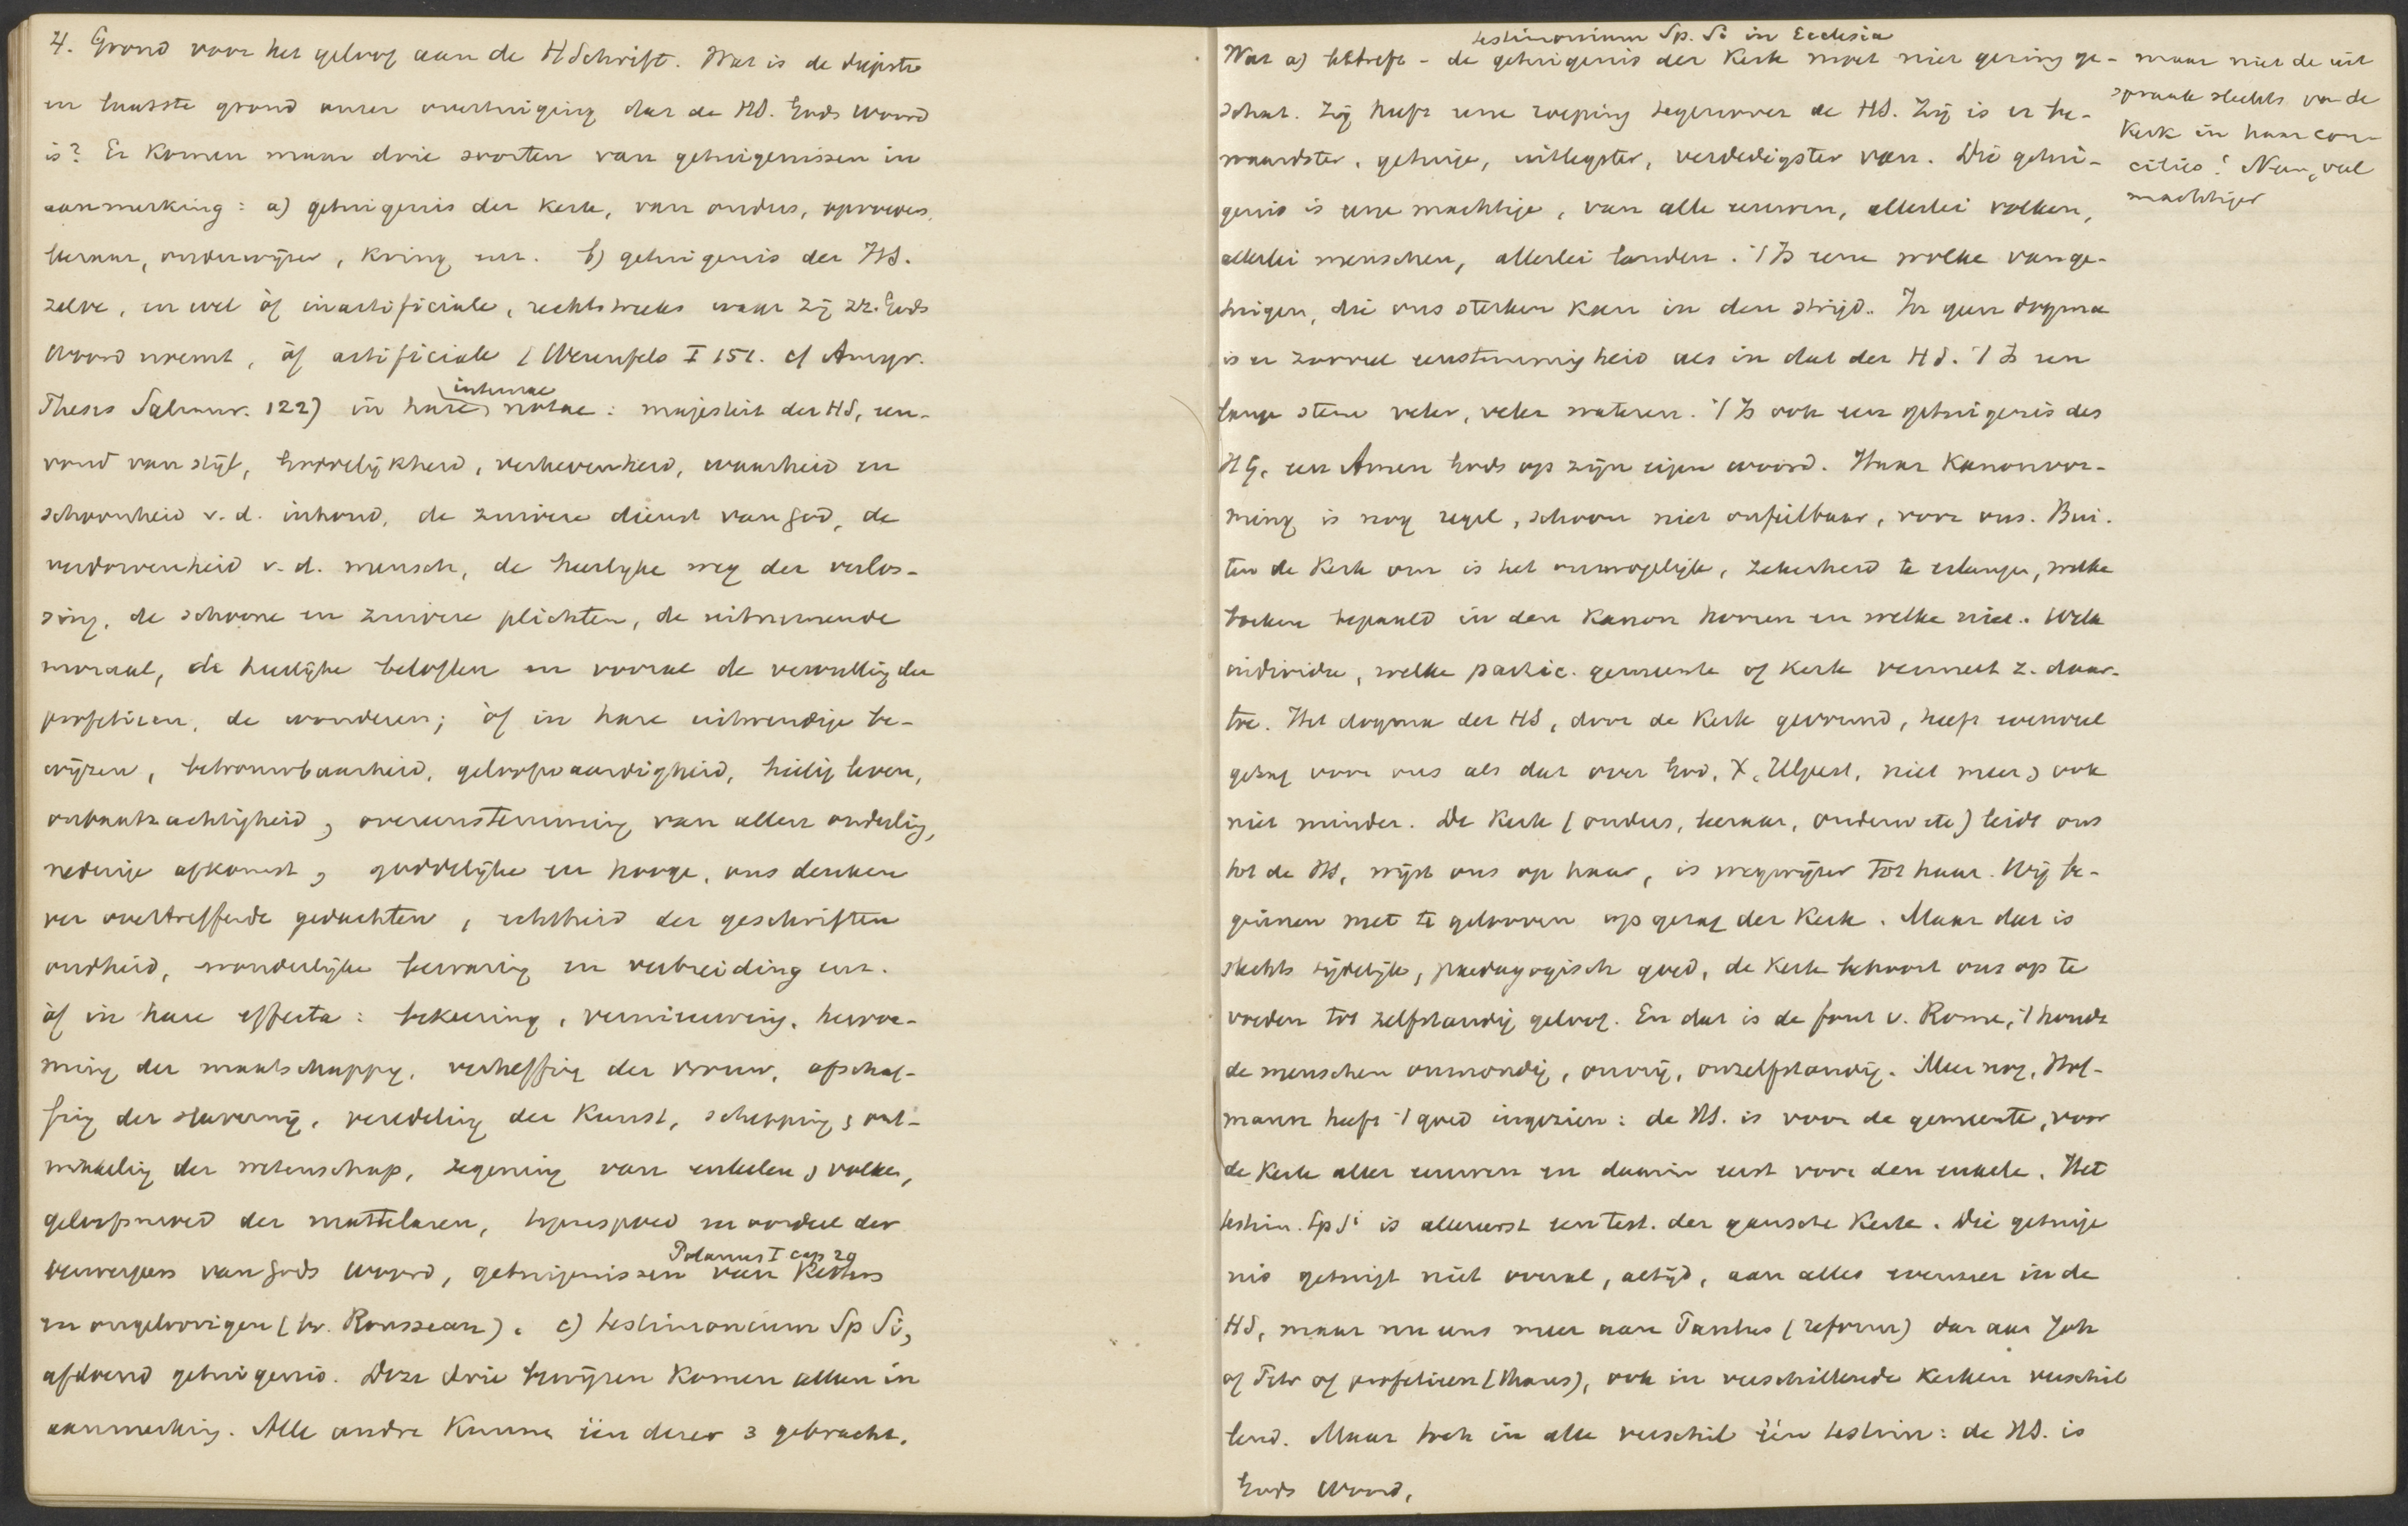 4. Grond voor het geloof aan de HSchrift. Wat is de diepste
en laatste grond onzer overtuiging dat de HS. Gods woord
is? Er komen maar drie soorten van getuigenissen in
aanmerking: a) getuigenis der kerk, van ouders, opvoeders,
leeraar, onderwijzer, kring enz. b) getuigenis der HS.
zelve, en wel òf inartificiale, rechtstreeks waar zij zz. Gods
Woord noemt, òf artificiale (Werenfels I 151. cf Amyr.
internae
Thesis Salmur. 122) in hare notae: majesteit der HS, een-
voud van stijl, Goddelijkheid, verhevenheid, waarheid en
schoonheid v. d. inhoud, de zuivere dienst van God, de
verdorvenheid v. d. mensch, de heerlijke weg der verlos-
sing, de schoone en zuivere plichten, de uitnemende
moraal, de heerlijke beloften en vooral de vervulling der
profetieen, de wonderen; òf in hare uitwendige be-
wijzen, betrouwbaarheid, geloofwaardigheid, heilig leven,
onbaatzuchtigheid, overeenstemming van allen onderling,
nederige afkomst, goddelijke en hooge, ons denken
ver overtreffende gedachten, echtheid der geschriften
oudheid, wonderlijke bewaring en verbreiding enz.
òf in hare effecta: bekeering, vernieuwing, hervor-
ming der maatschappij, verheffing der vrouw, afschaf-
fing der slavernij, veredeling der Kunst, schepping & ont-
wikkeling der wetenschap, zegening van enkelen & volken,
geloofsmoed der martelaren, tegenspoed en oordeel der
Polanus I cap 20
verwerpers van Gods Woord, getuigenissen van Ketters
en ongeloovigen (bv. Rousseau). c) testimonium Sp Si,
afdoend getuigenis. Deze drie bewijzen komen alleen in
aanmerking. Alle andre kunnen in dezer 3 gebracht.
testimonium Sp. Si in Ecclesia
Wat a) betreft - de getuigenis der Kerk moet niet gering ge-
schat. Zij heeft eene roeping tegenover de HS. Zij is er be-
waardster, getuige, uitlegster, verdedigster van. Die getui-
genis is eene machtige, van alle eeuwen, allerlei volken,
allerlei menschen, allerlei landen. 't Is eene wolke van ge-
tuigen, die ons sterken kan in den strijd. In geen dogma
is er zooveel eenstemmigheid als in dat der HS. 't Is een
lange stem veler, veler wateren. 't Is ook een getuigenis des
HG, een Amen Gods op zijn eigen woord. Haar Kanonvor-
ming is nog regel, schoon niet onfeilbaar, voor ons. Bui-
ten de Kerk om is het onmogelijk, zekerheid te erlangen, welke
boeken bepaald in den Kanon hooren en welke niet. Welk
individu, welke partic. gemeente of kerk vermeet z. daar-
toe. Het dogma der HS, door de Kerk gevormd, heeft evenveel
gezag voor ons als dat over God, X, HGeest, niet meer & ook
niet minder. De Kerk (ouders, leeraar, onderw etc) leidt ons
tot de HS, wijst ons op haar, is wegwijzer tot haar. Wij be-
ginnen met te gelooven op gezag der Kerk. Maar dat is
slechts tijdelijk, paedagogisch goed, de Kerk behoort ons op te
voeden tot zelfstandig geloof. En dat is de fout v. Rome, 't houdt
de menschen onmondig, onvrij, onzelfstandig. Meer nog, Hof-
mann heeft 't goed ingezien: de HS. is voor de gemeente, voor
de Kerk aller eeuwen en daarin eerst voor den enkele. Het
testim. Sp Si is allereerst een test. der gansche Kerk. Die getuige
nis getuigt niet overal, altijd, aan alles evenzeer in de
HS, maar nu eens meer aan Paulus (reform) dan aan Joh
of Petr of profetieen, ook in verschillende kerken verschil
lend. Maar toch in alle verschil één testim: de HS. is
Gods Woord.
maar niet de uit
spraak slechts van de
Kerk in haar con-
cilies! Neen, veel
machtiger